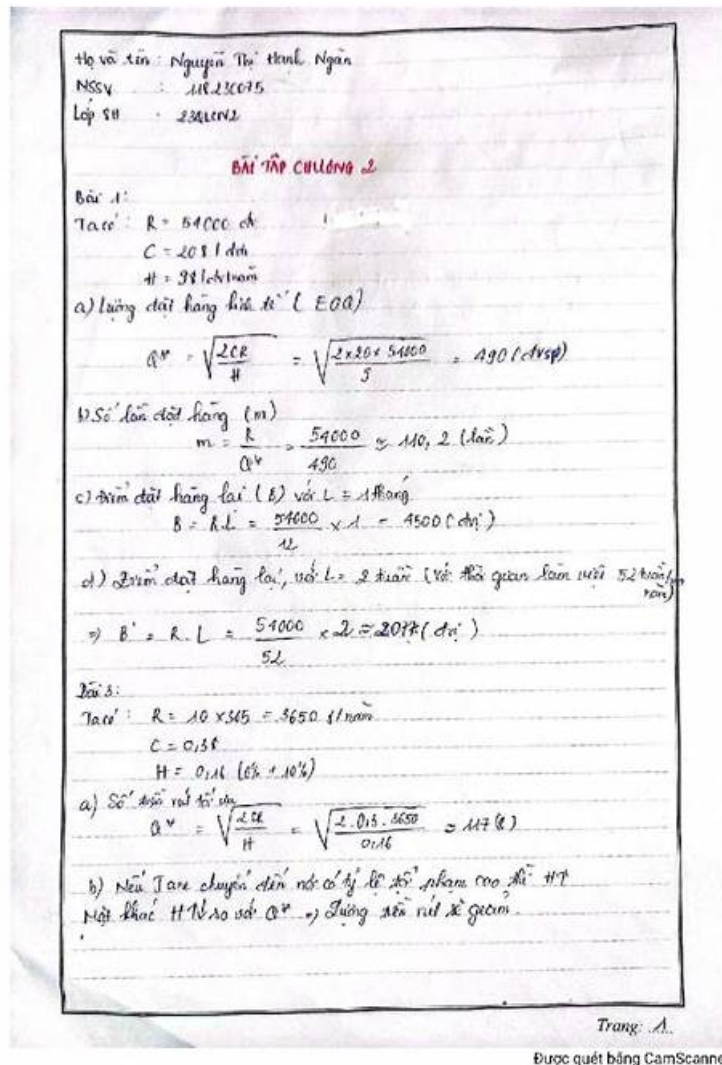 Họ và tên : Nguyễn Thị Hạnh Ngân
MSSV : 118230075
Lớp SH :
BÀI TẬP CHƯƠNG 2
Bài 1:
Ta có : R = 54000 đv
C = 20$ / đơn
H = 9$/đv/năm
a) Lượng đặt hàng kinh tế (EOQ)
Q* = √(2CR / H) = √(2 x 20 x 54000 / 9) = 490 (đvsp)
b) Số lần đặt hàng (m)
m = R / Q* = 54000 / 490 ≈ 110,2 (lần)
c) Điểm đặt hàng lại (B) với L = 1 tháng
B = R.L = 54000 / 12 x 1 = 4500 (đvị)
d) Điểm đặt hàng lại, với L = 2 tuần (với thời gian làm việc 52 tuần/năm)
=> B = R.L = 54000 / 52 x 2 = 2077 (đvị)
Bài 3:
Ta có : R = 10 x 365 = 3650 $/năm
C = 0,3$
H = 0,16 (6% + 10%)
a) Số tiền rút tối ưu
Q* = √(2CR / H) = √(2 . 0,3 . 3650 / 0,16) ≈ 117 ($)
b) Nếu Jane chuyển đến nơi có tỷ lệ tội phạm cao thì H↑
Mặt khác H so với Q* => Lượng tiền rút sẽ giảm.
Trang: 1
Được quét bằng CamScanne